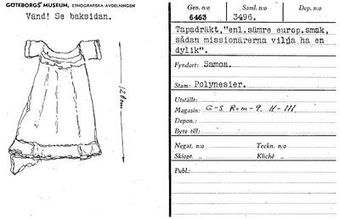 GÖTEBORGS MUSEUM, ETNOGRAFISKA AVDELNINGEN
Vänd! Se baksidan.
Gen. n:o Saml. n:o Dep. n:o
6463 3496.
Tapadräkt,"enl.sämre europ.smak,
sådan missionärerna vilja ha en
dylik".
Fyndort: Samoa.
Stam: Polynesier.
Utställe:
Magasin: G-S. R-m-9. H-III
Depon.:
Byte till:
Negat. n:o Teckn. n:o
Skiogr. „ Kliché „
Publ.: